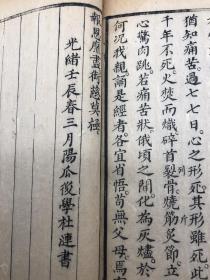 猶知痛苦。過七七日。心之形死。其形雖死。此
千年不死。火焚而熾碎首裂骨。燒筋炙節立
心驚肉跳。若痛苦狀。俄頃之間化為灰燼。於
何況我親。誦是經者。各宜省悟。苟無父母。焉
報恩靡盡銜慈莫極
光緒壬辰春三月陽瓜後學杜連書